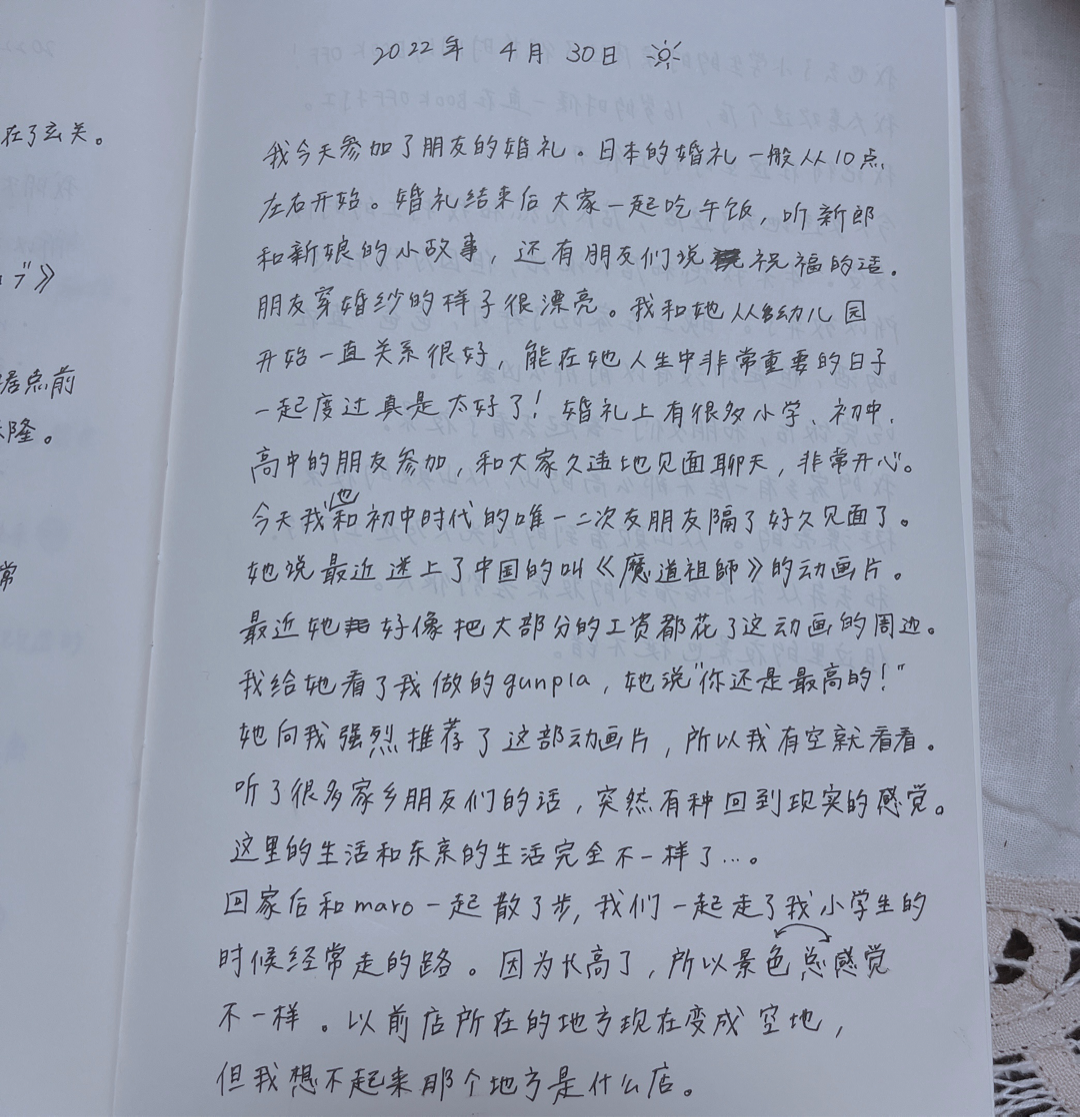 在了玄关。
ブ》
点前
隆。
常
2022年 4月 30日
我今天参加了朋友的婚礼。日本的婚礼一般从10点
左右开始。婚礼结束后大家一起吃午饭，听新郎
和新娘的小故事，还有朋友们说祝福的话。
朋友穿婚纱的样子很漂亮。我和她从幼儿园
开始一直关系很好，能在她人生中非常重要的日子
一起度过真是太好了！婚礼上有很多小学、初中、
高中的朋友参加，和大家久违地见面聊天，非常开心。
今天我也和初中时代的唯一二次友朋友隔了好久见面了。
她说最近迷上了中国的叫《魔道祖師》的动画片。
最近她好像把大部分的工资都花了这动画的周边。
我给她看了我做的gunpla，她说"你还是最高的！"
她向我强烈推荐了这部动画片，所以我有空就看看。
听了很多家乡朋友们的话，突然有种回到现实的感觉。
这里的生活和东京的生活完全不一样了…。
回家后和maro一起散了步，我们一起走了我小学生的
时候经常走的路。因为长高了，所以景色总感觉
不一样。以前店所在的地方现在变成空地，
但我想不起来那个地方是什么店。